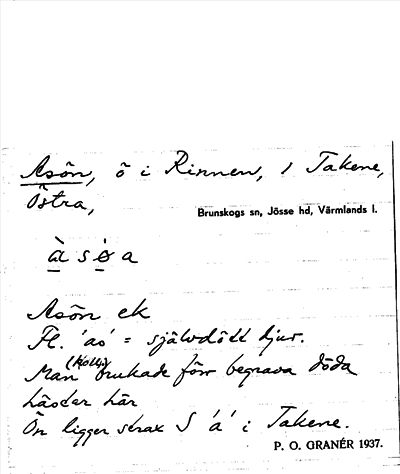 Asön, ö i Rinnen, 1 Takene,
Östra,
Brunskogs sn, Jösse hd, Värmlands l.
à s ø̀ a
Asön ek
Fl. 'as' = självdött djur.
Man (Kolls.) brukade förr begrava döda
hästar här
Ön ligger strax S 'a' i Takene.
P. O. GRANÉR 1937.